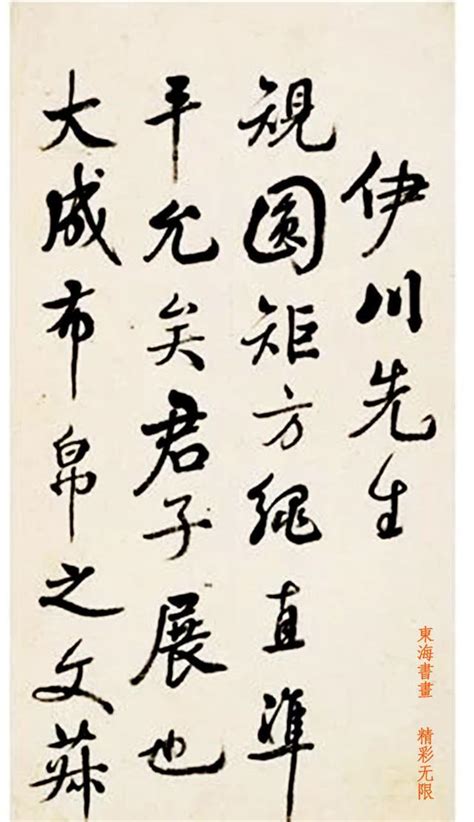 伊川先生
規圓矩方繩直準
平允矣君子展也
大成布帛之文菽
東海書畫 精彩无限